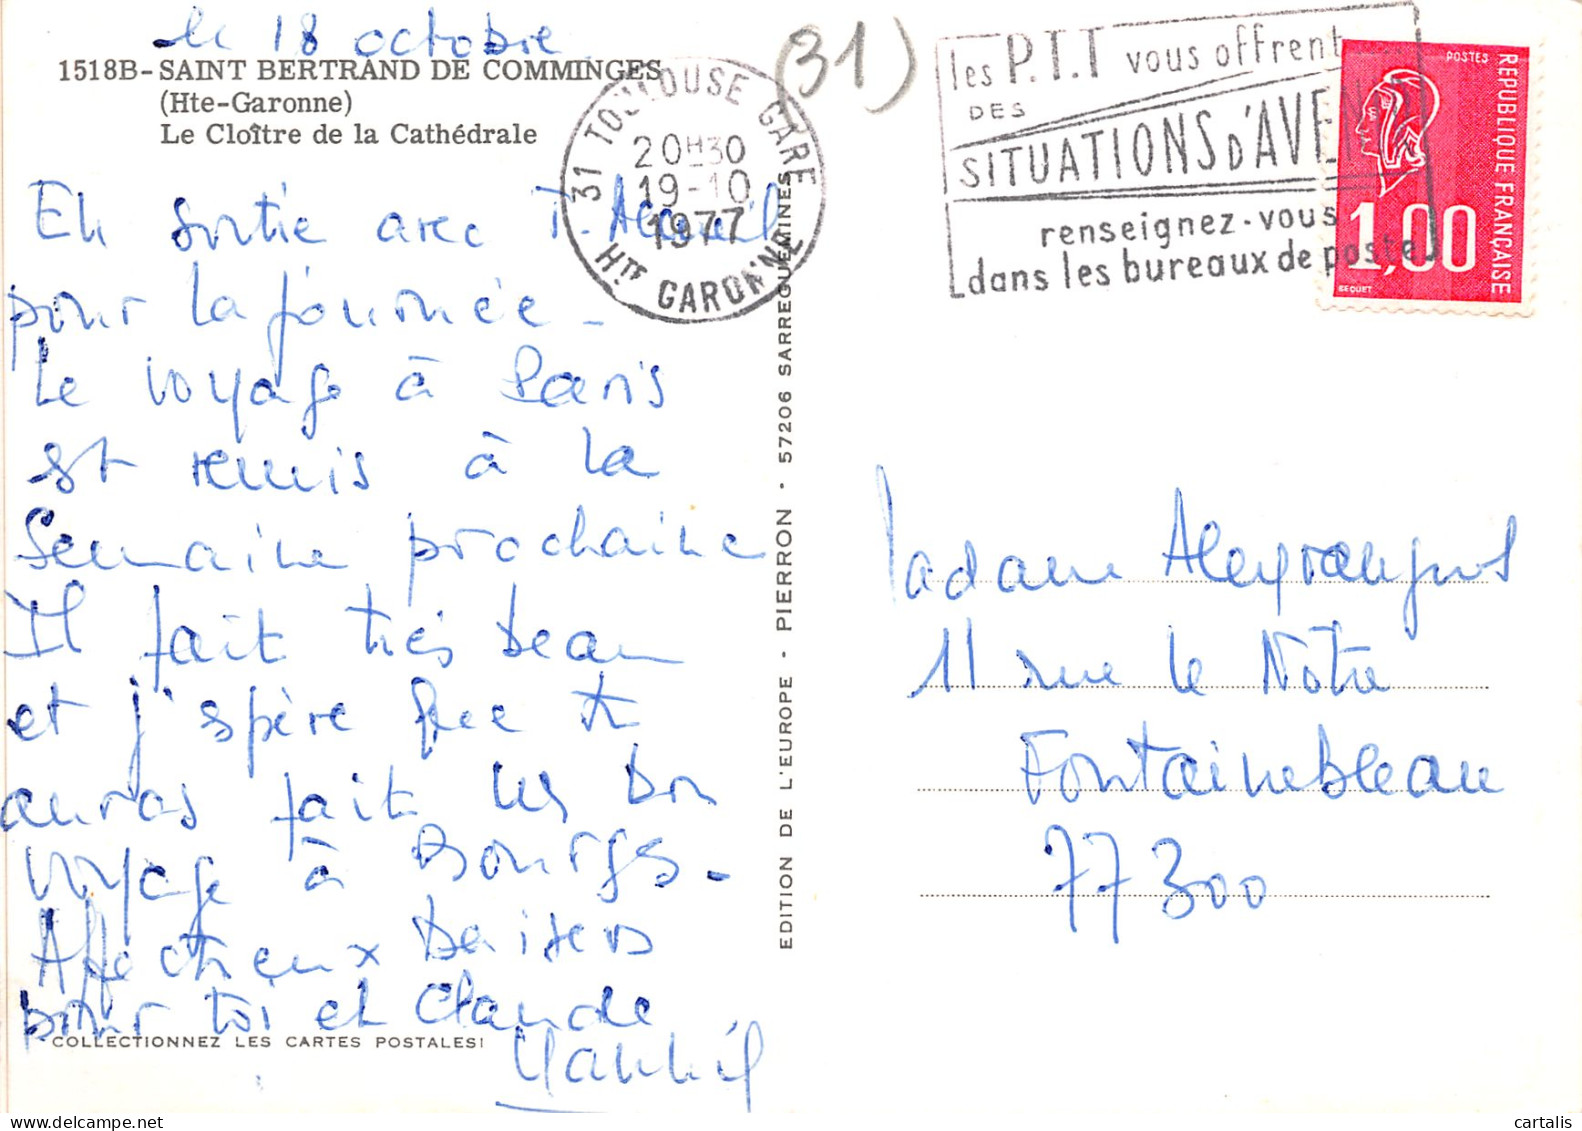 le 18 octobre
1518B-SAINT BERTRAND DE COMMINGES
(Hte-Garonne)
Le Cloître de la Cathédrale
En sortie avec T.
pour la journée -
Le voyage à Paris
est remis à la
Semaine prochaine
Il fait très beau
et j'espère que tu
auras fait un bon
voyage à Bourges -
Affectueux baisers
pour toi et Claude
COLLECTIONNEZ LES CARTES POSTALES!
EDITION DE L'EUROPE - PIERRON - 57206 SARREGUEMINES
31 TOULOUSE GARE
20H30
19-10
1977
HTE GARONNE
(31)
les P.T.T vous offrent
DES
SITUATIONS D'AVEN
renseignez-vous
dans les bureaux de poste
POSTES
REPUBLIQUE FRANÇAISE
1,00
BEQUET
Madame
11 rue le Nôtre
Fontainebleau
77300
cartalis